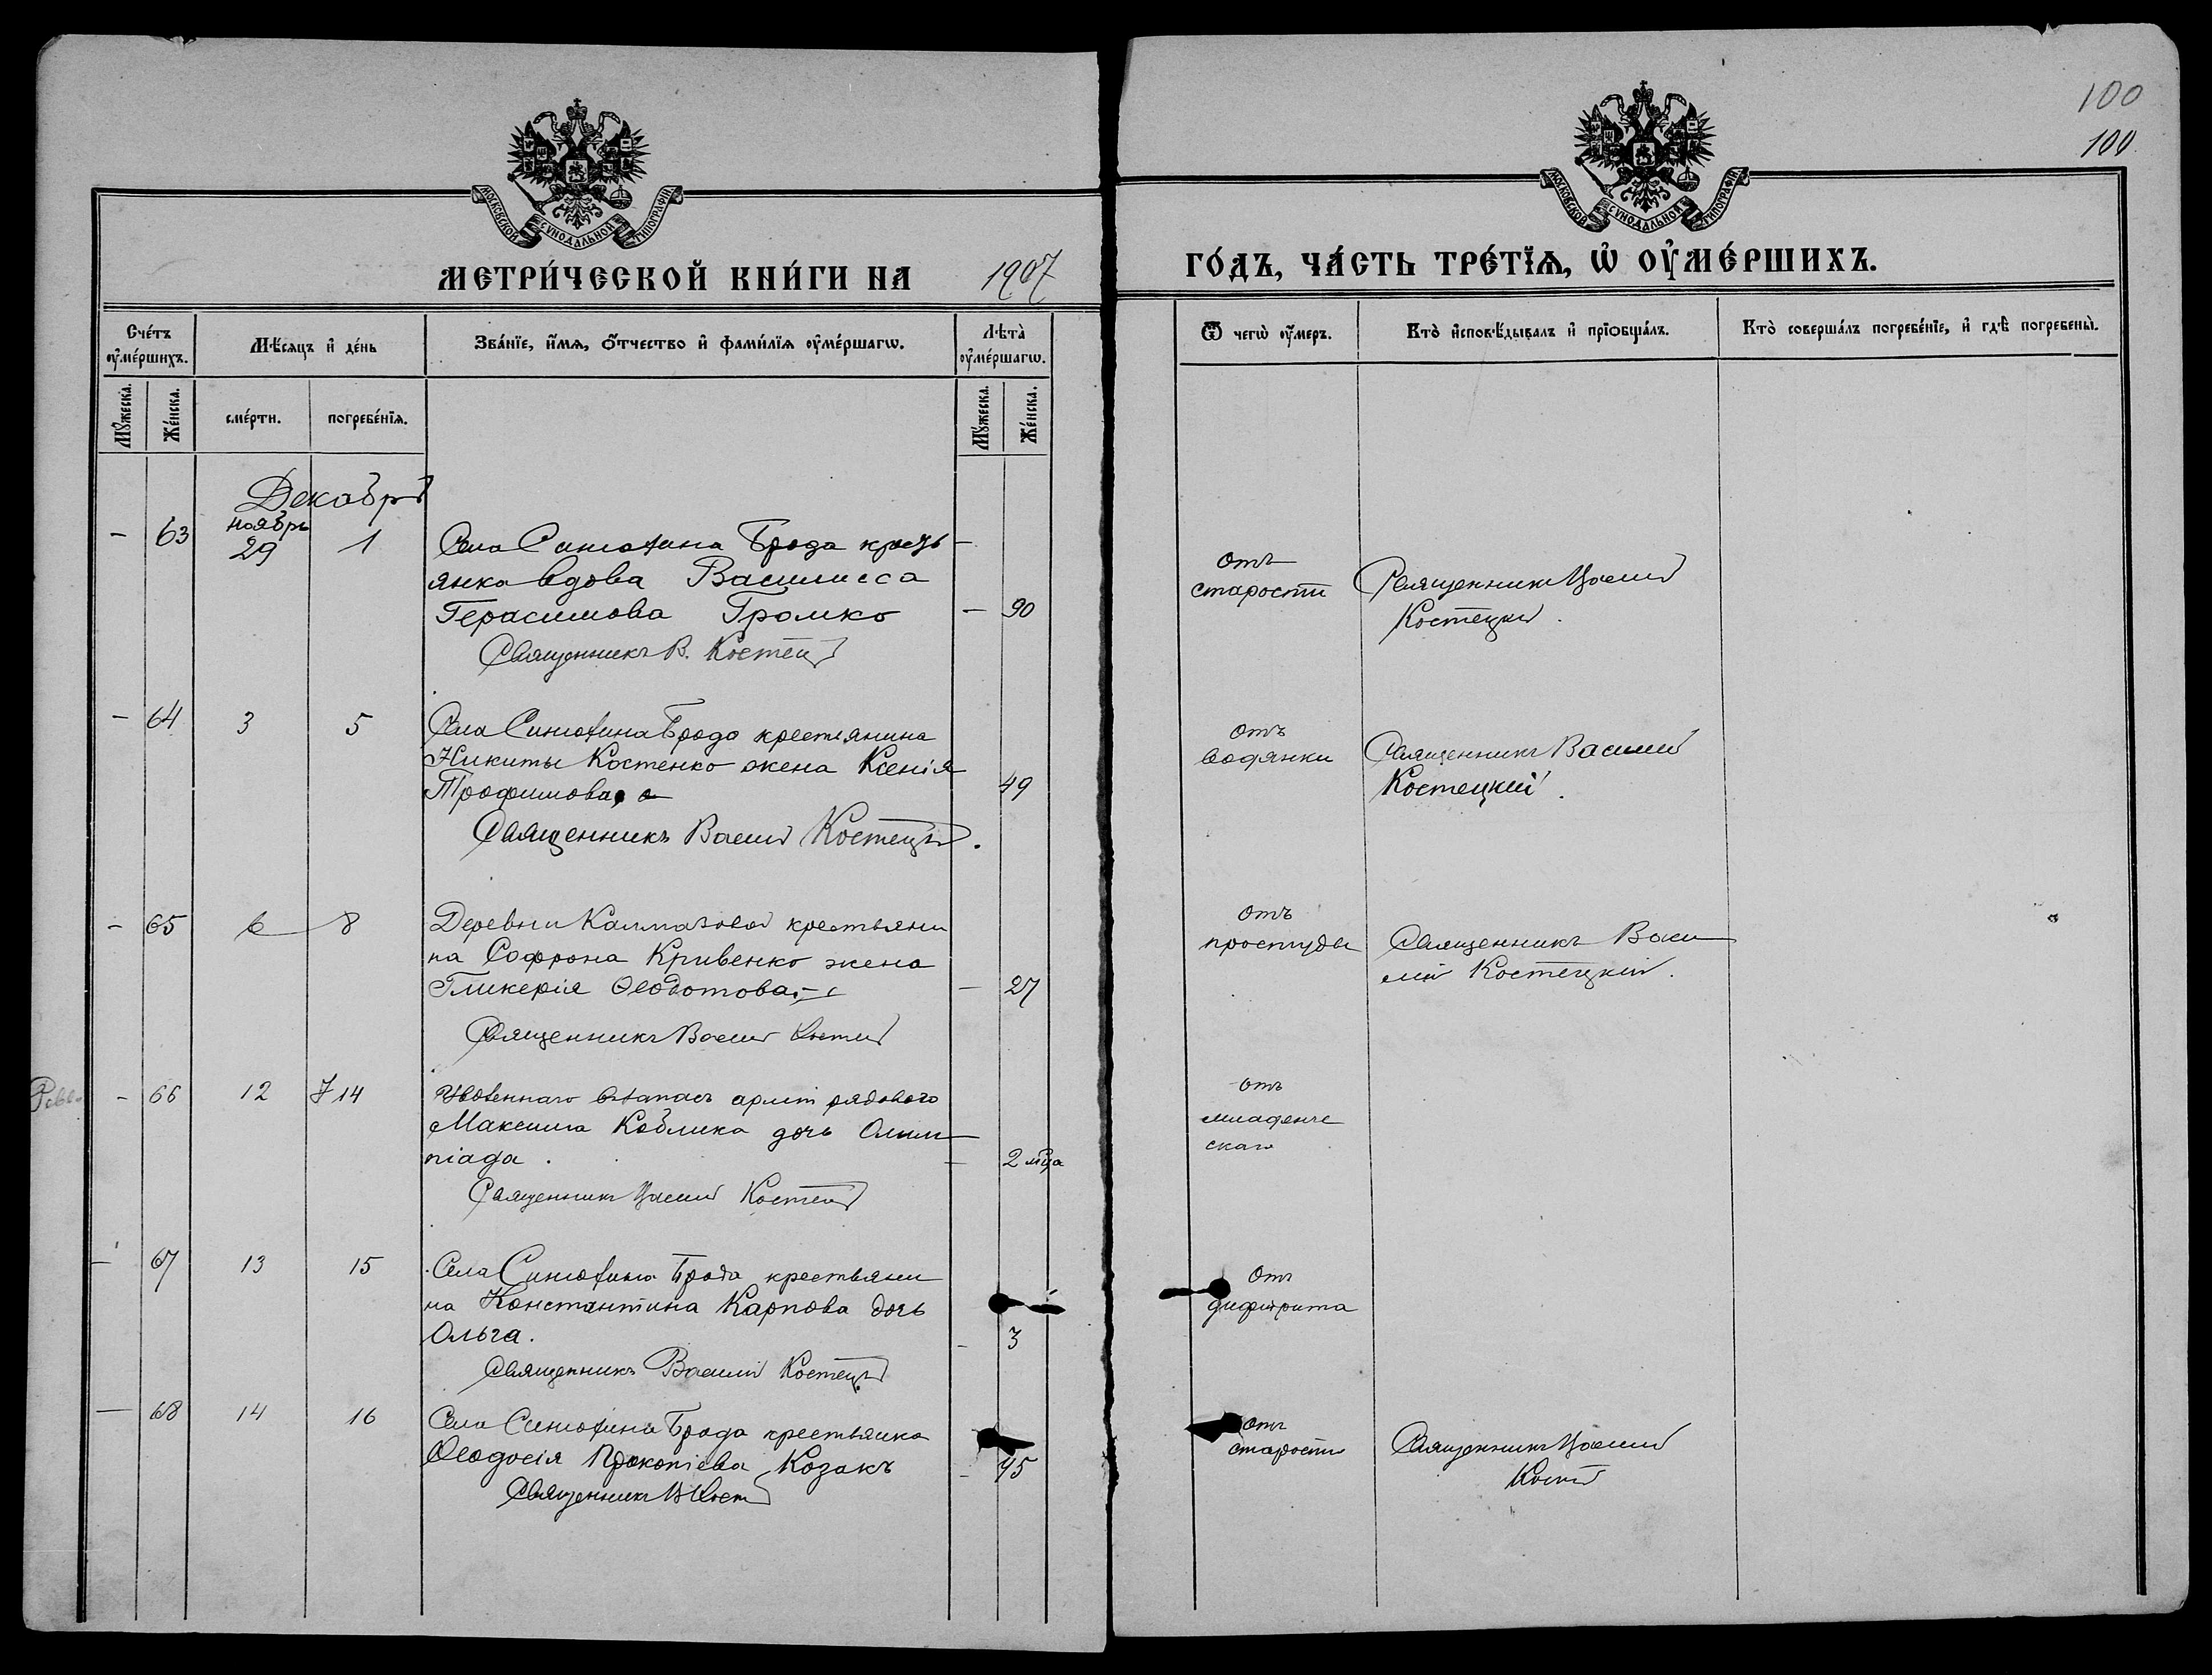 100
100
МОСКОВСКОЙ СУНОДАЛЬНОЙ ТИПОГРАФІИ
МОСКОВСКОЙ СУНОДАЛЬНОЙ ТИПОГРАФІИ
МЕТРИ́ЧЕСКОЙ КНИ́ГИ НА 1907 ГО́ДЪ, ЧА́СТЬ ТРЕ́ТЇѦ, Ѡ҆ ОУ҆МЕ́РШИХЪ.
Сче́тъ оу҆ме́ршихъ.
Мѣ́сѧцъ и҆ де́нь
Зва́нїе, и҆́мѧ, ѻ҆́тчество и҆ фами́лїѧ оу҆ме́ршагѡ.
Лѣ́та оу҆ме́ршагѡ.
Ѿ чегѡ̀ оу҆́меръ.
Кто̀ и҆сповѣ́дывалъ и҆ прїѻбща́лъ.
Кто̀ соверша́лъ погребе́нїе, и҆ гдѣ̀ погребены̀.
Мꙋ́жеска.
Же́нска.
сме́рти.
погребе́нїѧ.
Мꙋ́жеска.
Же́нска.
Декабрь
- 63 ноябрь 29 1 Села Синюхина Брода кресть
янка вдова Василисса
Герасимова Громко - 90
Священникъ В. Костецкій
отъ
старости
Священникъ Василій
Костецкій.
- 64 3 5 Села Синюхина Брода крестьянина
Никиты Костенко жена Ксенія
Трофимова 49
Священникъ Василій Костецкій.
отъ
водянки
Священникъ Василій
Костецкій.
- 65 6 8 Деревни Калмазовой крестьяни
на Софрона Кривенко жена
Гликерія Ѳеодотова - 27
Священникъ Василій Костецкій
отъ
простуды
Священникъ Васи
лій Костецкій.
- 66 12 14 Уволеннаго въ запасъ арміи рядового
Максима Коблика дочь Олим
піада. - 2 мца
Священникъ Василій Костецкій
отъ
младенче
скаго
- 67 13 15 Села Синюхина Брода крестьяни
на Константина Карпова дочь
Ольга. - 3
Священникъ Василій Костецкій
отъ
дифтерита
- 68 14 16 Села Синюхина Брода крестьянка
Ѳеодосія Прокопіева Козакъ - 95
Священникъ В Кост
отъ
старости
Священникъ Василій
Кост